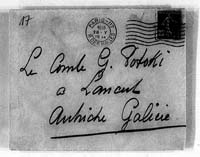 17
PARIS
Le Comte G. Potocki
a Lancut
Autriche Galicie